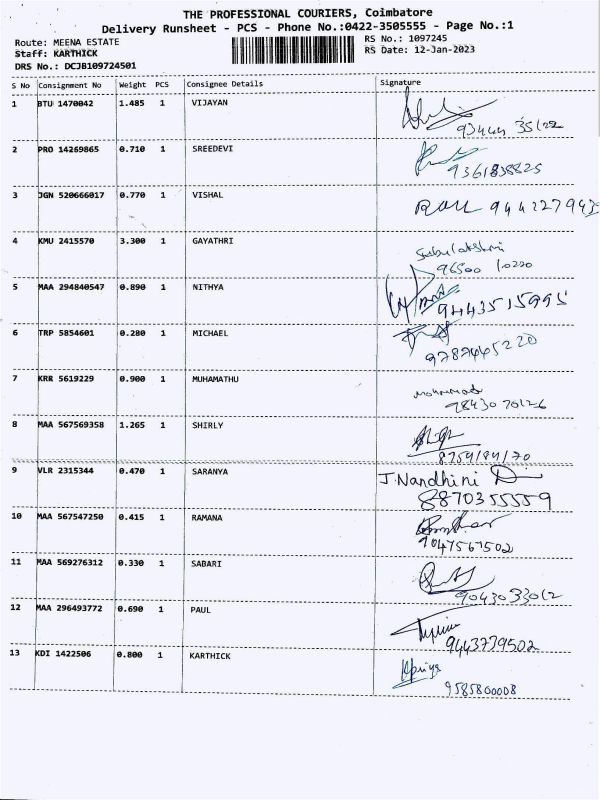 THE PROFESSIONAL COURIERS, Coimbatore
Delivery Runsheet - PCS - Phone No.:0422-3505555 - Page No.:1
Route: MEENA ESTATE
RS No.: 1097245
Staff: KARTHICK
RS Date: 12-Jan-2023
DRS No.: DCJB109724501
S No Consignment No Weight PCS Consignee Details Signature
1 BTU 1470042 1.485 1 VIJAYAN
93444 35122
2 PRO 14269865 0.710 1 SREEDEVI
9361838825
3 JGN 520666017 0.770 1 VISHAL
9441227943
4 KMU 2415570 3.300 1 GAYATHRI
Subulakshmi
96500 10220
5 MAA 294840547 0.890 1 NITHYA
9443515995
6 TRP 5854601 0.280 1 MICHAEL
9787445220
7 KRR 5619229 0.900 1 MUHAMATHU
9843070126
8 MAA 567569358 1.265 1 SHIRLY
8754184170
9 VLR 2315344 0.470 1 SARANYA
J.Nandhini
8870355559
10 MAA 567547250 0.415 1 RAMANA
9047567502
11 MAA 569276312 0.330 1 SABARI
9043033012
12 MAA 296493772 0.690 1 PAUL
9443739502
13 KDI 1422506 0.800 1 KARTHICK
9585800008